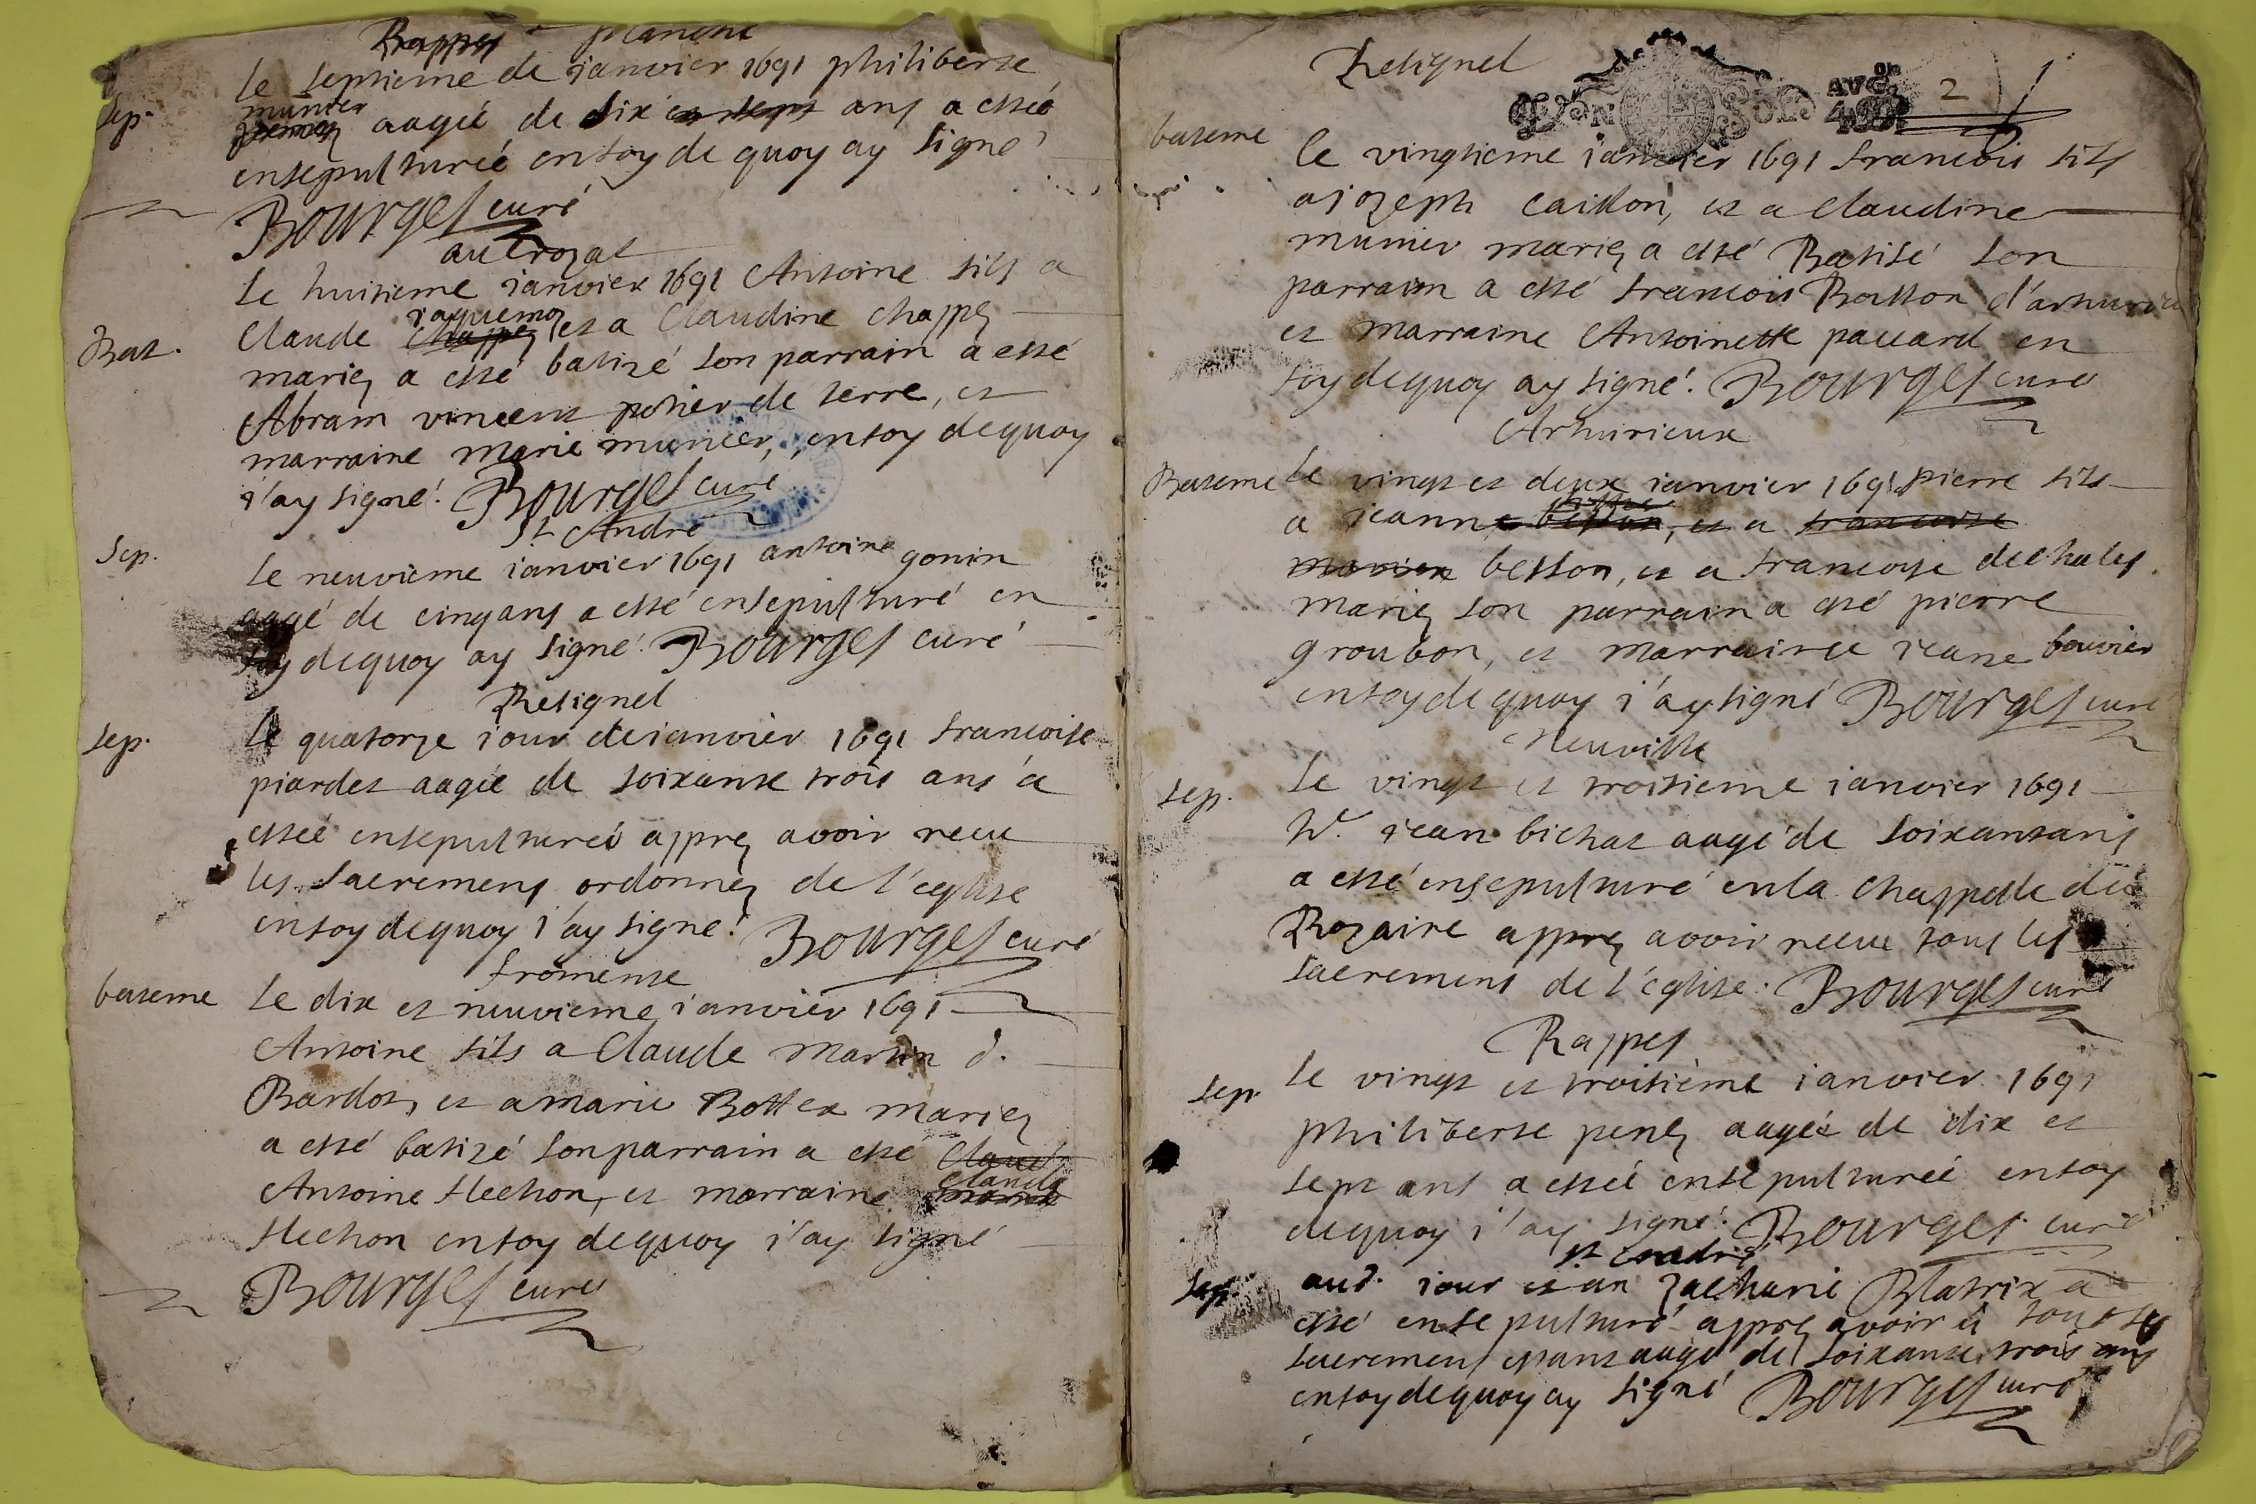 Rappes planche
Le septieme de janvier 1691 philiberte
munier
Sep. aagée de dix et sept ans a estée
ensepulturée en foy de quoy ay signé
Bourges curé
au crozat
Le huitieme janvier 1691 Antoine fils a
jaquemoz
Bat. Claude chappez et a Claudine chappez
mariez a esté batizé son parrain a esté
Abram vincent potier de terre, et
marraine marie munier, en foy dequoy
j'ay signé. Bourges curé
St André
Sep. Le neuvieme janvier 1691 antoine gonin
aagé de cinq ans a esté ensepulturé en
foy dequoy ay signé. Bourges curé
Resignel
Sep. Le quatorze jour de janvier 1691 francoise
piardet aagée de soixante trois ans a
estée ensepulturée apprez avoir receu
les sacremens ordonnez de l'eglise
en foy dequoy j'ay signé. Bourges curé
fromente
bateme Le dix et neuvieme janvier 1691
Antoine fils a Claude Martin d.
Bardot, et a marie Bottex mariez
a esté batizé son parrain a esté Claude
Antoine flechon, et marraine Claude
flechon en foy dequoy j'ay signé
Bourges curé
Resignel
UN SOL AVG.on 4 D. 2
bateme Le vingtieme janvier 1691 francois fils
a jozeph caillon, et a Claudine
munier mariez a esté Batisé son
parrain a esté francois Bosson d'arturieu
et marraine Antoinette paccard en
foy dequoy ay signé. Bourges curé
Arturieux
Bateme Le vingt et deux janvier 1691 pierre fils
a jeanne besson, et a francoise
besson, et a francoise dechales
mariez son parrain a esté pierre
groubon, et marrainee jeane bouvier
en foy de quoy j'ay signé Bourges curé
Neuville
Sep. Le vingt et troisieme janvier 1691
hr. jean bichat aagé de soixant ans
a esté ensepulturé en la chappelle du
Rozaire apprez avoir receu tous les
sacremens de l'eglise. Bourges curé
Rappes
Sep. Le vingt et troisieme janvier 1691
philiberte penez aagée de dix et
sept ans a estée ensepulturée en foy
dequoy j'ay signé. Bourges curé
st André
Sep. aud. jour et an zacharie Blatrix a
esté ensepulturé apprez avoir û tous les
sacremens estant aagé de soixante trois ans
en foy dequoy ay signé Bourges curé